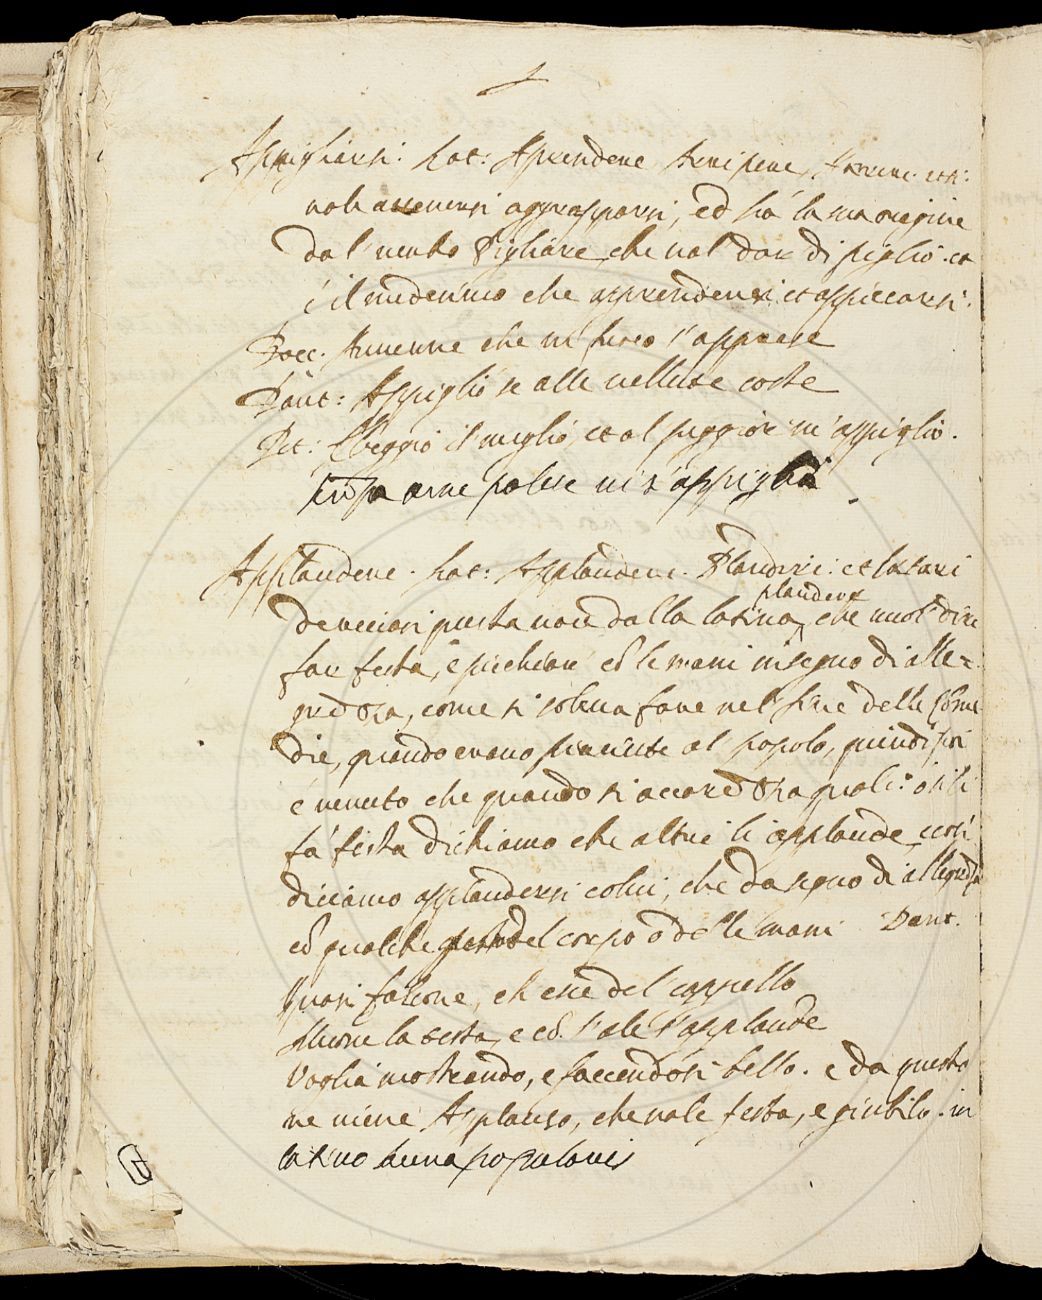 Appigliarsi. Lat: Aprendere Arripere,
vale attenersi aggrapparsi, ed há la sua origine
dal verbo Pigliare, che val dar di piglio. et
é il medesimo che apprendersi et appiccarsi.
Bocc. Avenne che un fuoco s'apprese
Dant: Appigliò se alle vellute coste
Pet: Veggio il meglio, et al peggior m'appiglio.
arme polve m s'appiglia
Applaudere. Lat: Applaudere. Plaudere: et
questa voce dalla latina plaudere che vuol dire
far festa, e picchiare cõ le mani in segno di alle=
grezza, come si soleva fare nel fine delle Come
die, quando erano piaciute al popolo, quindi poi
é venuto che quando si accarezza qualc: ó si li
fá festa dichiamo che altri li applaude, cosi
diciamo applaudersi colui, che da segno di allegrezza
cõ qualche gesto del corpo ó delle mani Dant.
Quasi falcone, ch esce del cappello
Muove la testa, e cõ l'ale s'applaude
Voglia mostrando, e faccendosi bello. e da questo
ne viene Applauso, che vale festa, e giubilo. in
latino aura popularis